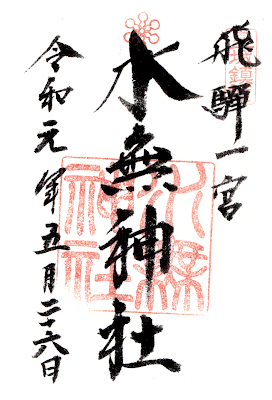 飛驒一宮
水無神社
水無神社
令和元年五月二十六日